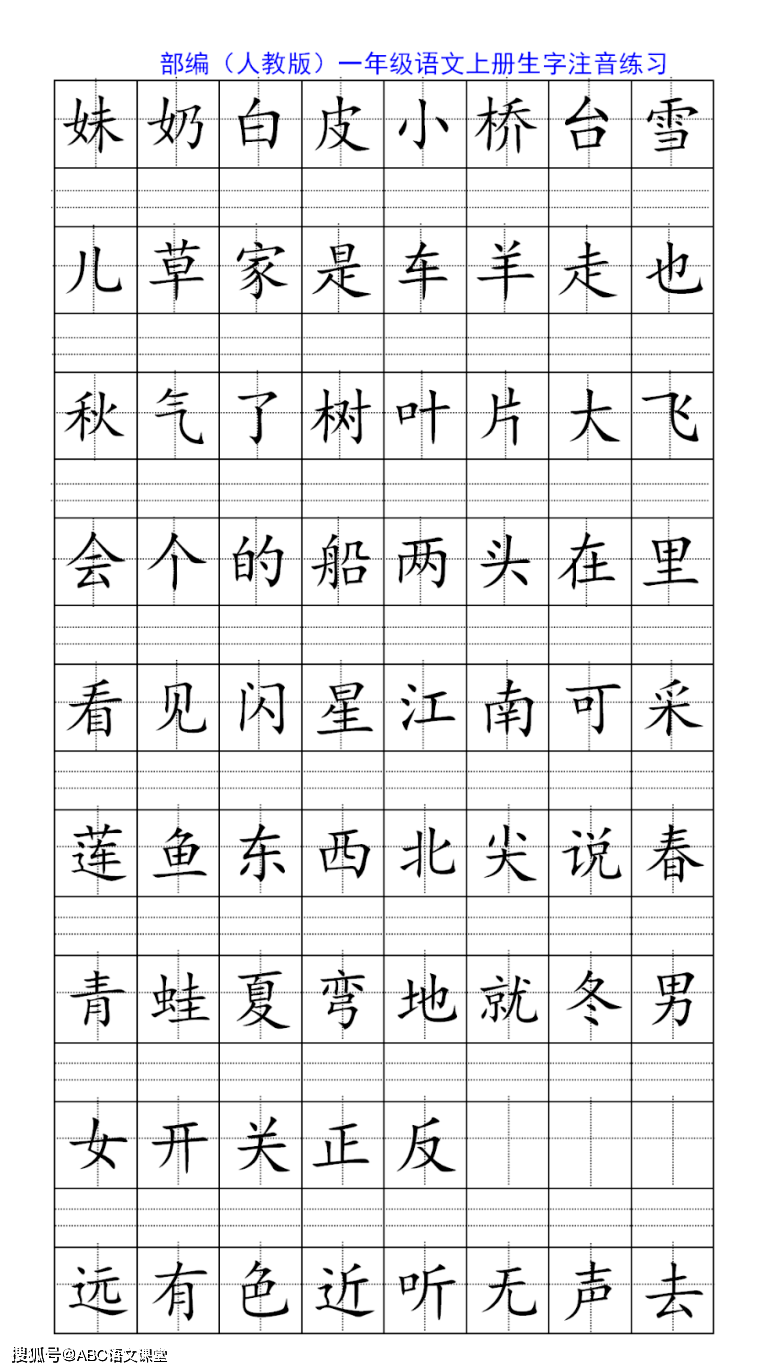 部编（人教版）一年级语文上册生字注音练习
妹 奶 白 皮 小 桥 台 雪
儿 草 家 是 车 羊 走 也
秋 气 了 树 叶 片 大 飞
会 个 的 船 两 头 在 里
看 见 闪 星 江 南 可 采
莲 鱼 东 西 北 尖 说 春
青 蛙 夏 弯 地 就 冬 男
女 开 关 正 反
远 有 色 近 听 无 声 去
搜狐号@ABC语文课堂